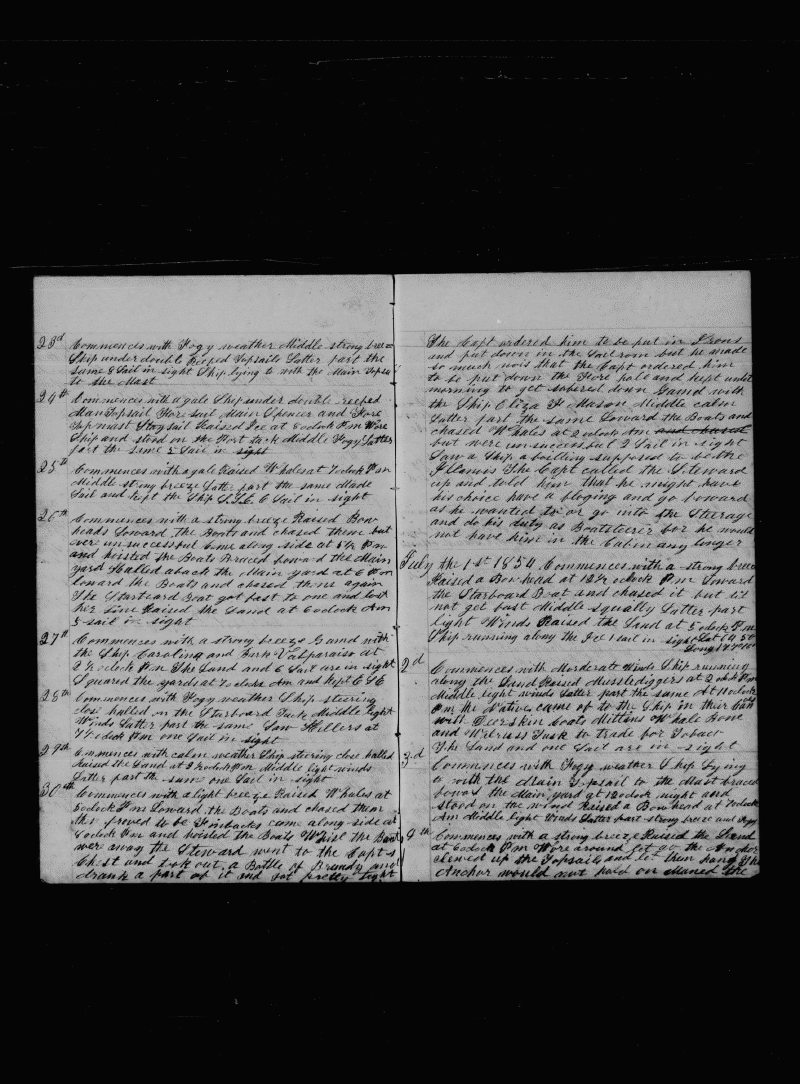 23d Commences with Fogy weather Middle strong breeze
Ship under double Reeped Topsails Latter part the
same 8 Sail in sight Ship lying to with the Main Topsail
to the Mast
24th Commences with a gale Ship under double reeped
Main Topsail Fore sail Main Spencer and Fore
Top mast Stay sail Raised Ice at 6 oclock P.m Wore
Ship and stood on the Port tack Middle Fogy Latter
part the same 2 Sail in sight
25th Commences with a gale Raised Whales at 7 oclock P.m
Middle strong breeze Latter part the same Made
Sail and kept the Ship S.S.E. 6 Sail in sight
26th Commences with a strong breeze Raised Bow
heads Loward the Boats and chased them but
ver unsuccessful Come along side at 1½ P.m
and hoisted the Boats Braced forward the Main
yard Halled aback the Main yard at 6 P.m
loward the Boats and chased them again
The Starboard Boat got fast to one and lost
her line Raised the Land at 6 oclock A.m
5 sail in sight
27th Commences with a strong breeze Gamed with
the Ship Carolina and Bark Valparaiso at
2½ oclock P.m The Land and 6 Sail are in sight
Squared the yards at 7 oclock A.m and kept E S E
28th Commences with Fogy weather Ship steering
close halled on the Starboard Tack Middle light
Winds Latter part the same Saw Killers at
7½ oclock P.m one Sail in sight
29th Commences with calm weather Ship steering close halled
Raised the Land at 2 oclock P.m Middle light winds
Latter part the same one Sail in sight
30th Commences with a light breeze Raised Whales at
5 oclock P.m Loward the Boats and chased them
they proved to be Finbacks came along side at
8 oclock P.m and hoisted the Boats While the Boats
were away the Steward went to the Capt-s
Chest and took out a Bottle of Brandy and
drank a part of it and got pretty tight
The Capt ordered him to be put in Irons
and put down in the Sail rom but he made
so much nois that the Capt ordered him
to be put down the Fore hole and kept until
morning to get sobered down Gamed with
the Ship Eliza F Mason Middle calm
Latter part the same Loward the Boats and
chased Whales at 2 oclock A.m and chased
but were unsuccessful 2 Sail in sight
Saw a Ship a boilling supposed to be the
Illinois The Capt called the Steward
up and told him that he might have
his choice have a floging and go forward
as he wanted to or go into the Steerage
and do his duty as Boatsteerer for he would
not have hime in the Cabin any longer
July the 1st 1854 Commences with a strong breeze
Raised a Bow head at 12½ oclock P.m Loward
the Starboard Boat and chased it but did
not get fast Middle squally Latter part
light Winds Raised the Land at 5 oclock P.m
Ship running along the Ice 1 sail in sight Lat 64 50
Long
2d Commences with Morderate Winds Ship running
along the Land Raised Mussledigers at 2 oclock P.m
Middle light winds Latter part the same At 11 oclock
P.m the Natives came of to the Ship in their
with Deerskin Coats Mittens Whale Bone
and Walruss Tusk to trade for Tobaco
The Land and one Sail are in sight
3d Commences with Fogy weather Ship lying
to with the Main Topsail to the Mast braced
forward the Main yard at 12 oclock night and
stood on the wind Raised a Bowhead at 7 oclock
A.m Middle light Winds Latter part strong breeze and fogy
4th Commences with a strong breeze Raised the Land
at 6 oclock P.m Wore around let go the Anchor
clewed up the Topsails and let them hang The
Anchor would not hold on Maned the